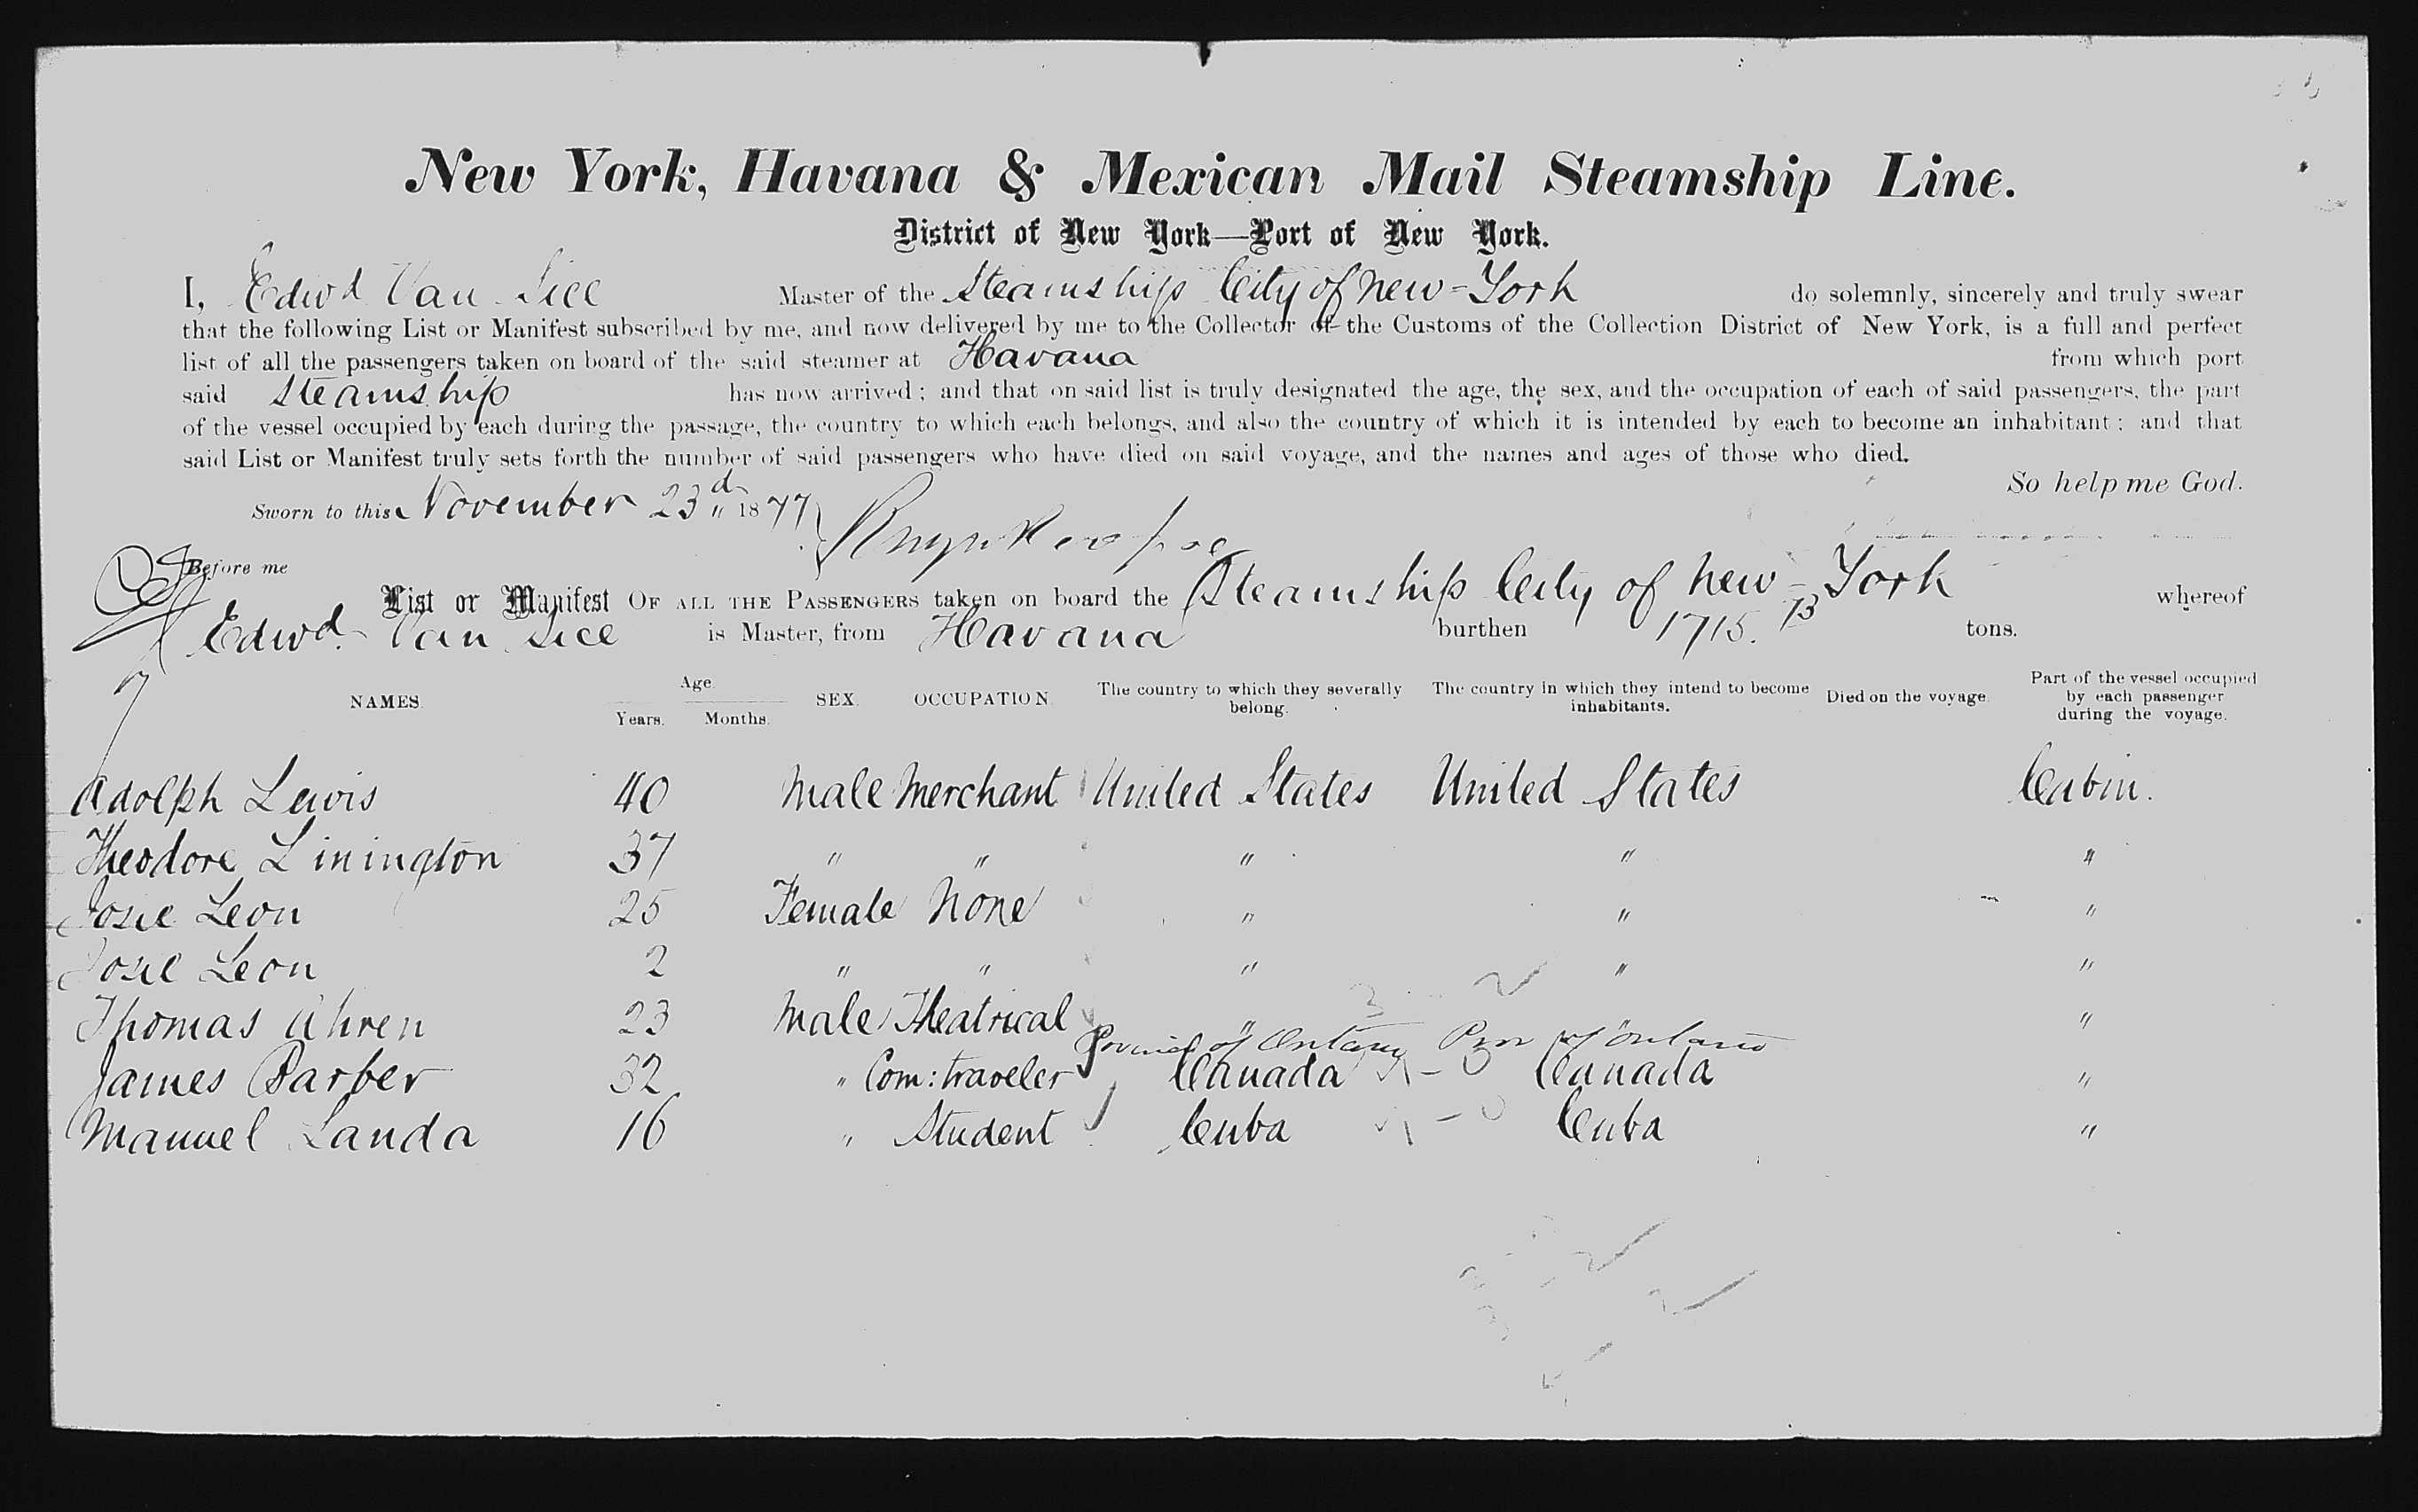 New York, Havana & Mexican Mail Steamship Line.
District of New York—Port of New York.
I, Edwd Van Sice Master of the Steamship City of New-York do solemnly, sincerely and truly swear
that the following List or Manifest subscribed by me, and now delivered by me to the Collector of the Customs of the Collection District of New York, is a full and perfect
list of all the passengers taken on board of the said steamer at Havana from which port
said Steamship has now arrived; and that on said list is truly designated the age, the sex, and the occupation of each of said passengers, the part
of the vessel occupied by each during the passage, the country to which each belongs, and also the country of which it is intended by each to become an inhabitant; and that
said List or Manifest truly sets forth the number of said passengers who have died on said voyage, and the names and ages of those who died.
So help me God.
Sworn to this November 23d 1877
Before me
List or Manifest OF ALL THE PASSENGERS taken on board the Steamship City of New-York whereof
Edwd. Van Sice is Master, from Havana burthen 1715. 73 tons.
NAMES. Age. Years. Months. SEX. OCCUPATION. The country to which they severally belong. The country in which they intend to become inhabitants. Died on the voyage. Part of the vessel occupied by each passenger during the voyage.
Adolph Lewis 40 Male Merchant United States United States Cabin.
Theodore Linington 37 " " " " "
Josie Leon 25 Female None " " "
Josie Leon 2 " " " " "
Thomas Ahren 23 Male Theatrical " " "
Province of Ontario Prov of Ontario
James Barber 32 " Com: traveler Canada Canada "
Manuel Landa 16 " Student Cuba Cuba "